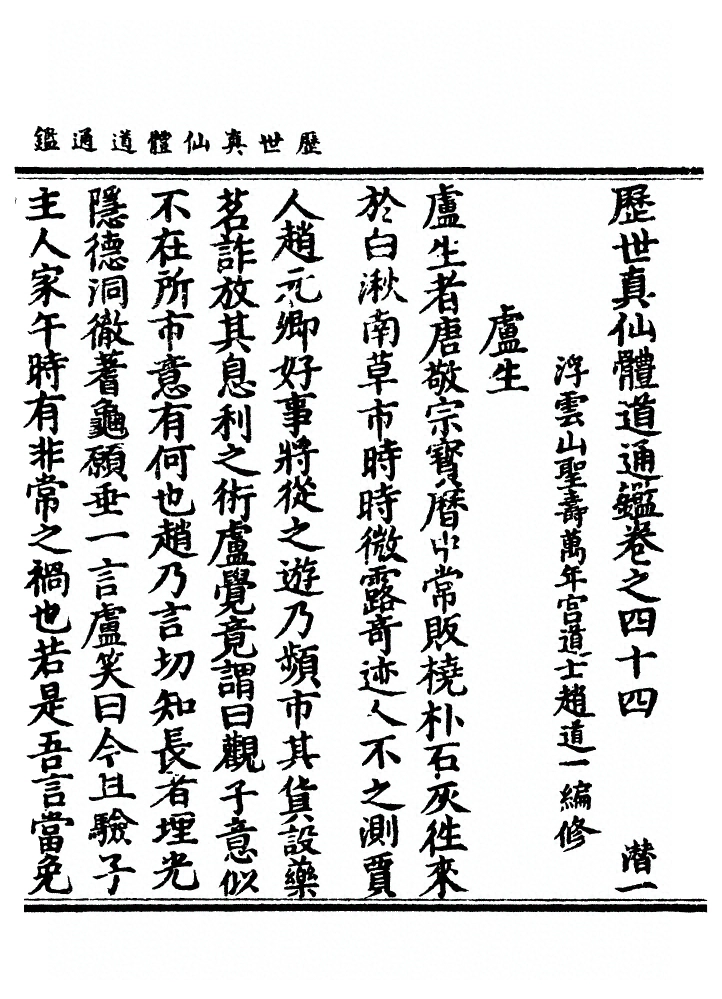 歷世真仙體道通鑑
歷世真仙體道通鑑卷之四十四　潛一
浮雲山聖壽萬年宮道士趙道一編修
盧生
盧生者唐敬宗寶曆中常販橈朴石灰徃來
於白湫南草市時時微露奇迹人不之測賈
人趙元卿好事將從之遊乃頻市其貨設藥
茗詐放其息利之術盧覺竟謂曰觀子意似
不在所市意有何也趙乃言切知長者埋光
隱德洞徹蓍龜願垂一言盧笑曰今且驗子
主人家午時有非常之禍也若是吾言當免